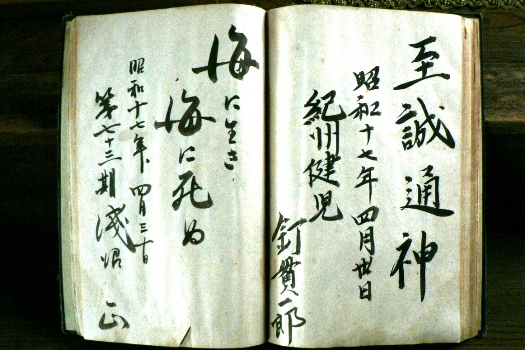 至誠通神
昭和十七年四月卅日
紀州健児
釘貫一郎
海に生き
海に死ぬ
昭和十七年、四月三十日
第七十三期 正